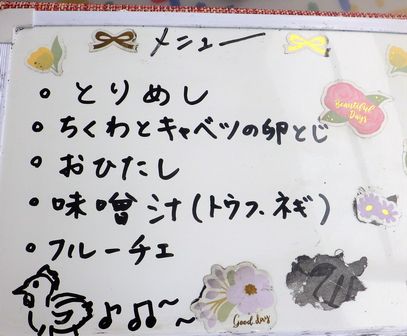 メニュー
・とりめし
・ちくわとキャベツの卵とじ
・おひたし
・味噌汁(トウフ、ネギ)
・フルーチェ
Beautiful Days
Good day